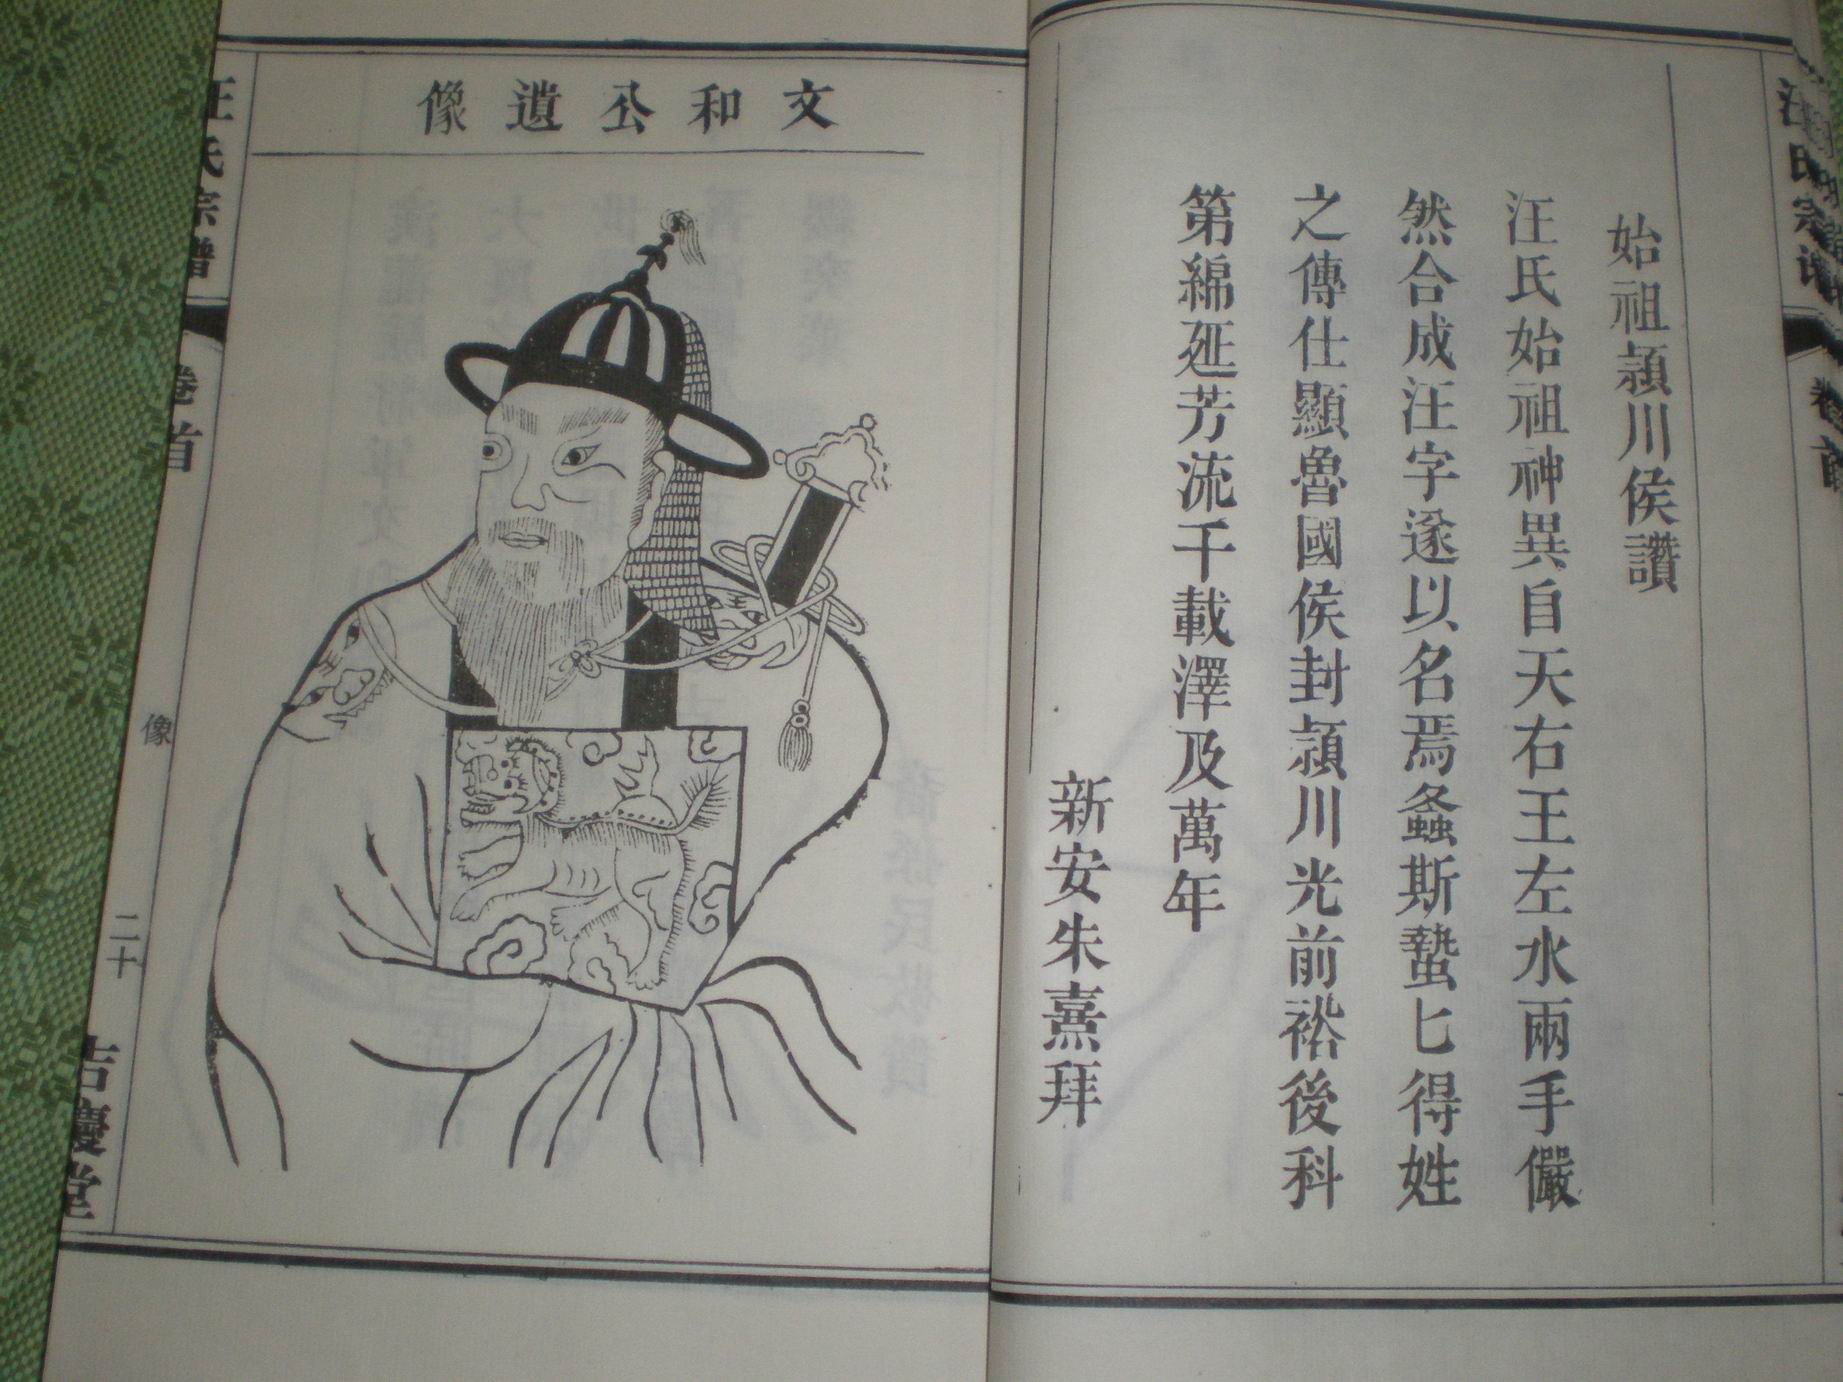 始祖潁川侯讚
汪氏始祖神異自天右王左水兩手儼
然合成汪字遂以名焉螽斯蟄匕得姓
之傳仕顯魯國侯封潁川光前裕後科
第綿延芳流千載澤及萬年
新安朱熹拜
文和公遺像
汪氏宗譜
卷首
像
二十
吉慶堂